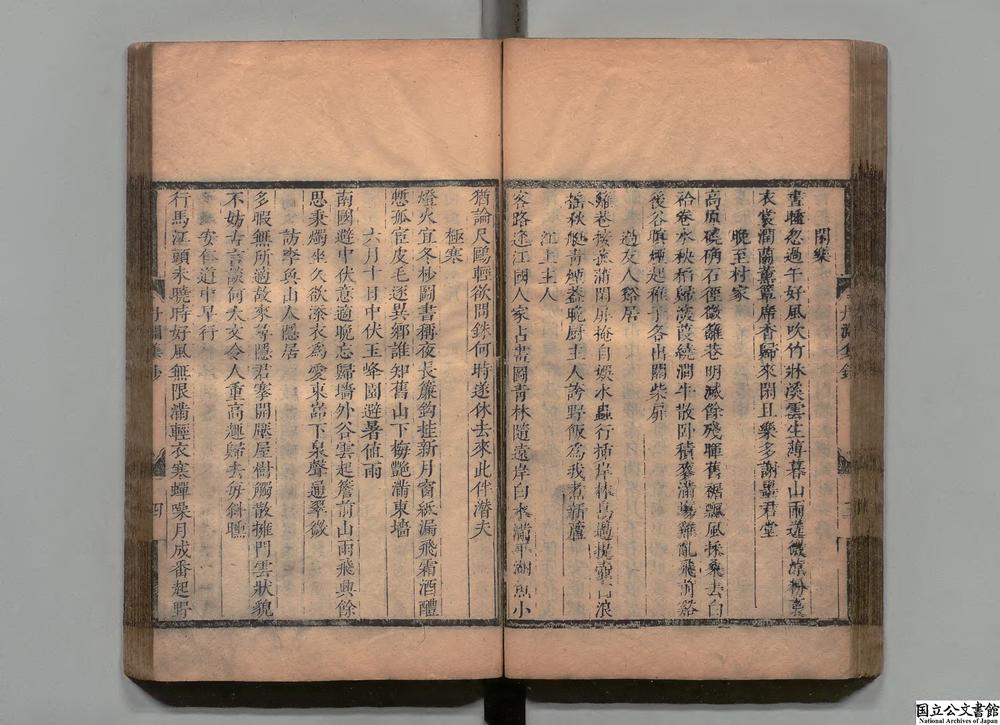 閑樂
晝睡忽過午好風吹竹牀溪雲生薄暮山雨送微涼紛裏
衣裳潤蘭薰簟席香歸來閑且樂多謝墨君堂
晚至村家
高原磽确石徑微籬巷明滅餘殘暉舊裾飄風採桑去白
袷卷水秧稻歸深葭繞澗牛散卧積麥滿場雞亂飛前谿
後谷暝煙起稚子各出關柴扉
過友人谿居
籬巷接菰蒲閑扉掩自娛水蟲行插岸林鳥過提壺白浪
搖秋艇青煙蓋晚厨主人誇野飯為我煮新蘆
江上主人
客路逢江國人家占畫圖青林隨遠岸白水滿平湖魚小
猶論尺鷗輕欲問銖何時遂休去來此伴潛夫
極寒
燈火宜冬杪圖書稱夜長簾鈎挂新月窗紙漏飛霜酒醴
慙孤宦皮毛逐異鄉誰知舊山下梅艷滿東墻
六月十日中伏玉峰園避暑值雨
南國避中伏意適晚忘歸墻外谷雲起簷前山雨飛興餘
思秉燭坐久欲添衣為愛東嵓下泉聲通翠微
訪李奐山人隱居
多暇無所適故來尋隱君搴開壓屋樹觸散擁門雲狀貌
不妨古言談何太文令人重高趣歸去每斜曛
安仁道中早行
行馬江頭未曉時好風無限滿輕衣寒蟬噪月成番起野
丹淵集鈔
四
国立公文書館
National Archives of Japan